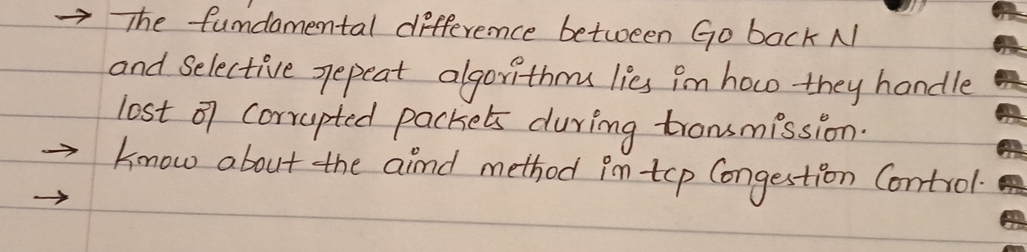 → The fundamental difference between Go back N
and Selective repeat algorithms lies in how they handle
lost or corrupted packets during transmission.
→ Know about the aimd method in tcp Congestion Control.
→